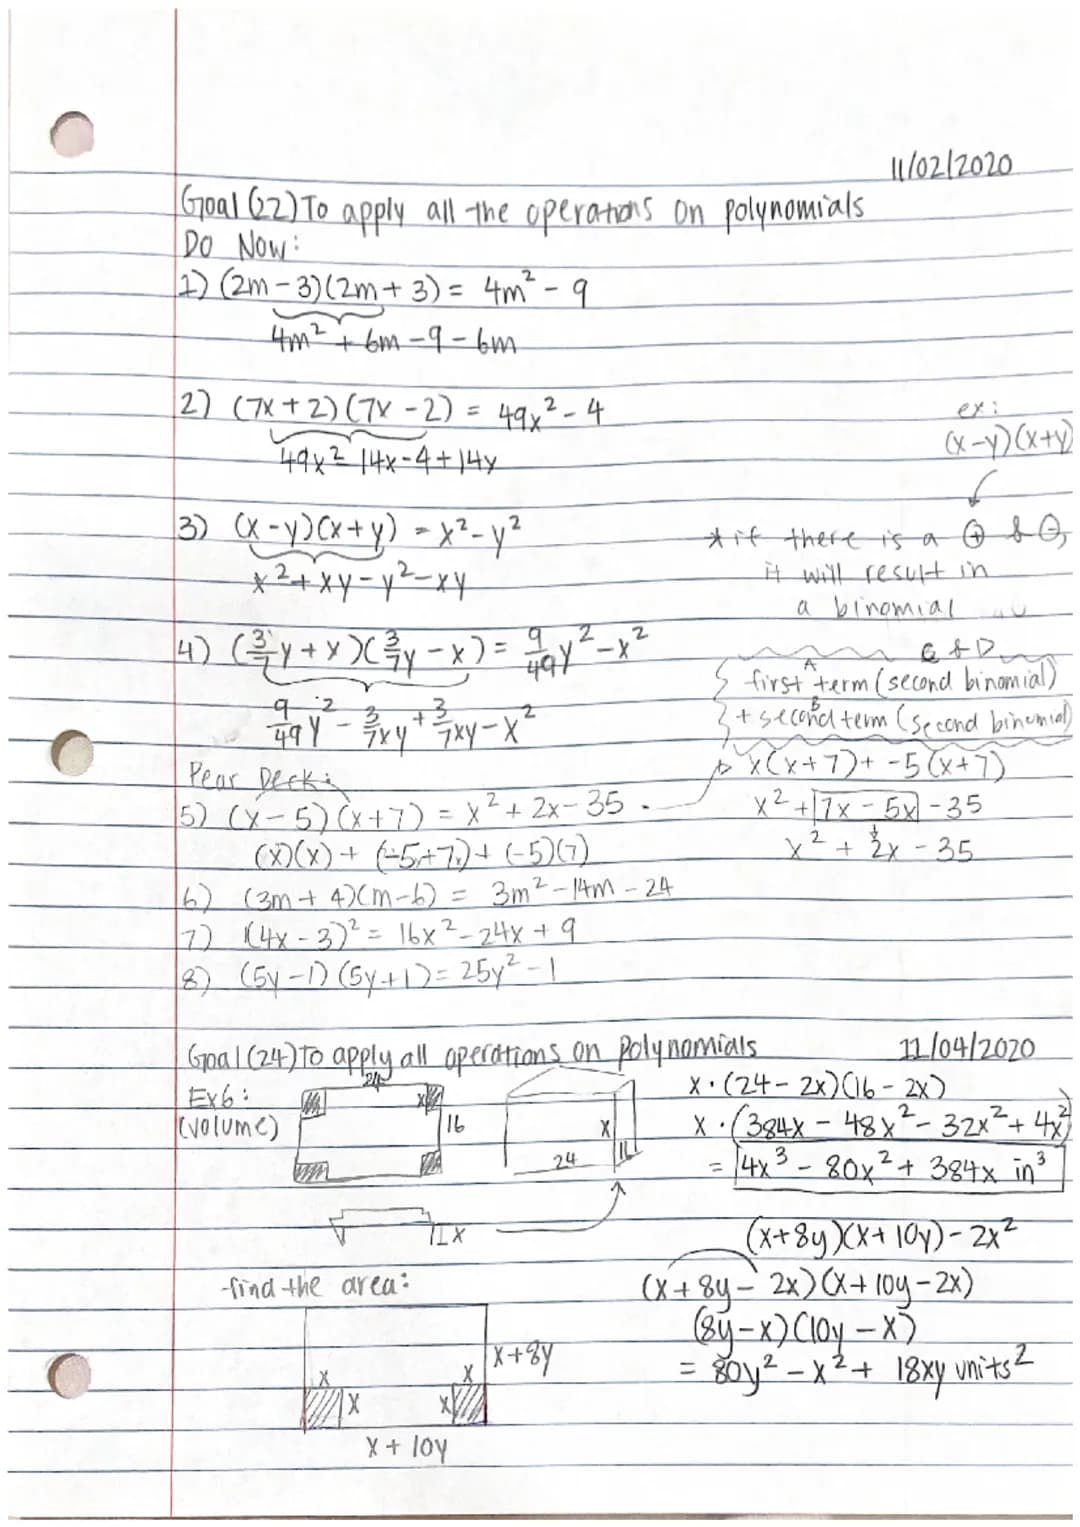 11/02/2020
Goal (22) To apply all the operations on polynomials
Do Now:
1) (2m-3)(2m+3) = 4m² - 9
4m² + 6m - 9 - 6m
2) (7x+2)(7x-2) = 49x² - 4
49x² 14x-4+14x
ex:
(x-y)(x+y)
3) (x-y)(x+y) = x²-y²
x²+xy-y²-xy
* if there is a ⊕ & ⊖,
it will result in
a binomial
4) (3/7y+x)(3/7y-x) = 9/49y²-x²
9/49y² - 3/7xy + 3/7xy - x²
C & D
A
first term (second binomial)
B
+ second term (second binomial)
Pear Deck:
x(x+7)+ -5(x+7)
5) (x-5)(x+7) = x²+2x-35
x²+7x-5x-35
(x)(x) + (-5+7) + (-5)(7)
x² + 2x - 35
6) (3m+4)(m-6) = 3m²-14m-24
7) (4x-3)² = 16x²-24x+9
8) (5y-1)(5y+1) = 25y²-1
Goal (24) to apply all operations on polynomials 11/04/2020
Ex6:
(volume)
24
x
16
x
24
x
x·(24-2x)(16-2x)
x·(384x-48x²-32x²+4x²)
= 4x³-80x²+384x in³
(x+8y)(x+10y)-2x²
find the area:
(x+8y-2x)(x+10y-2x)
(8y-x)(10y-x)
= 80y²-x²+18xy units²
x+8y
x
x
x
x
x+10y